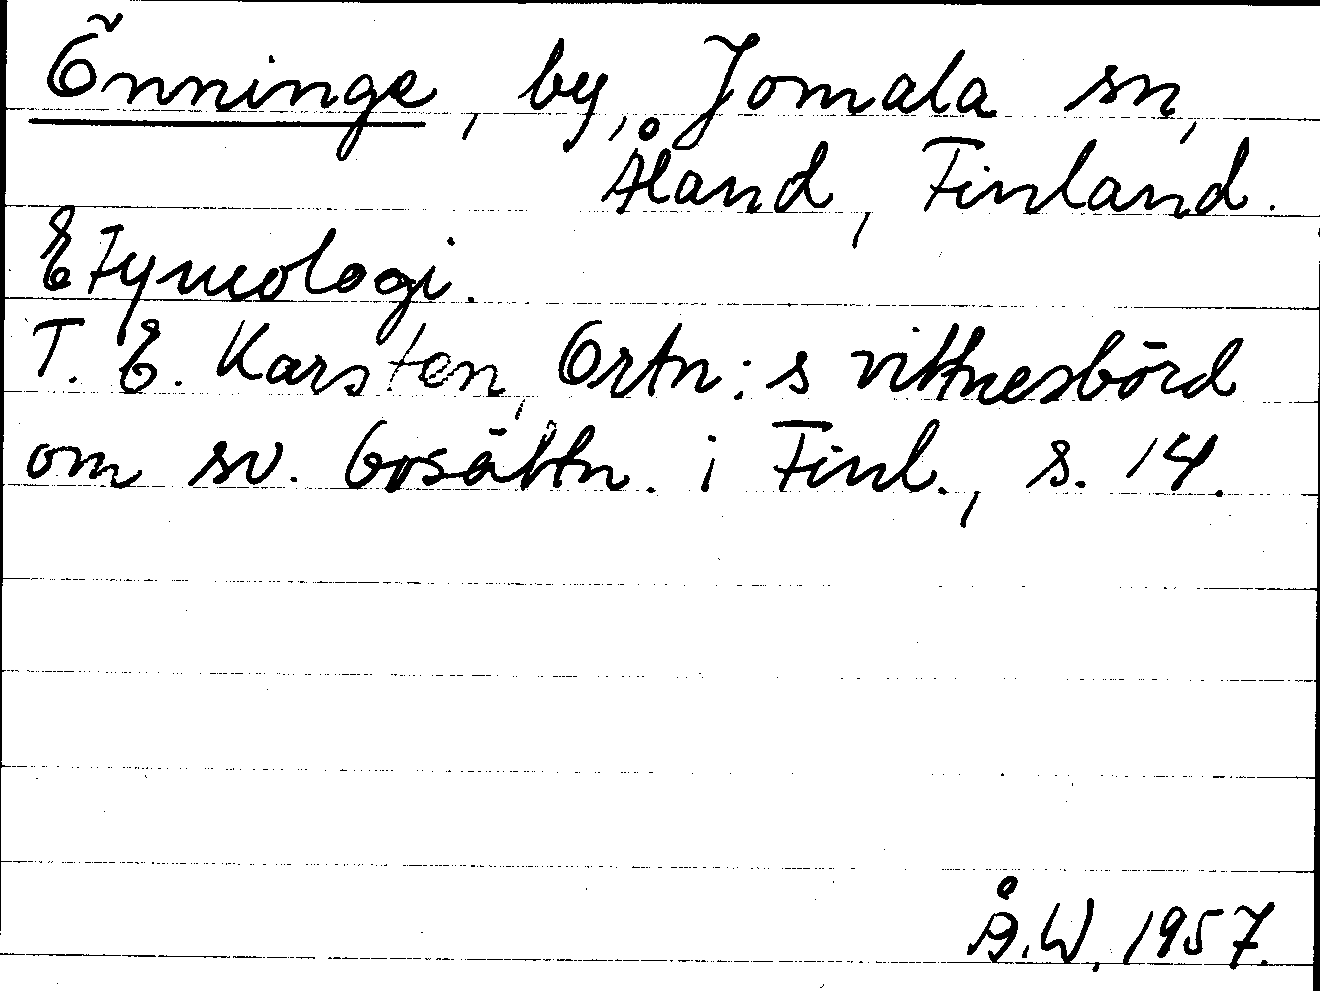 Önninge, by, Jomala sn,
Åland, Finland.
Etymologi.
T. E. Karsten, Ortn:s vittnesbörd
om sv. bosättn. i Finl., s. 14.
Å.W. 1957.